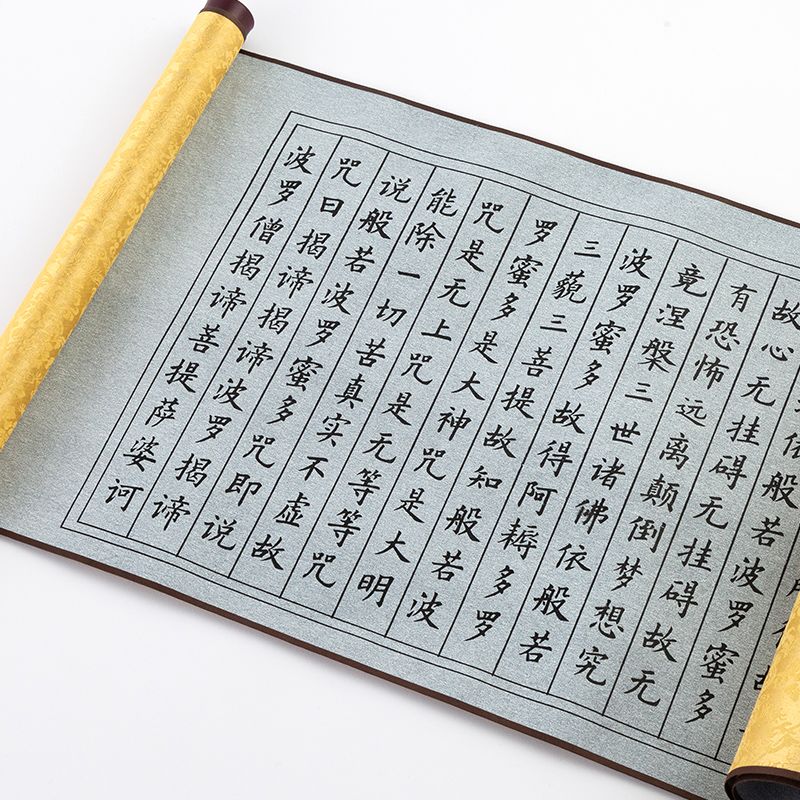 依般若波罗蜜多
故心无挂碍无挂碍故无
有恐怖远离颠倒梦想究
竟涅槃三世诸佛依般若
波罗蜜多故得阿耨多罗
三藐三菩提故知般若波
罗蜜多是大神咒是大明
咒是无上咒是无等等咒
能除一切苦真实不虚故
说般若波罗蜜多咒即说
咒曰揭谛揭谛波罗揭谛
波罗僧揭谛菩提萨婆诃